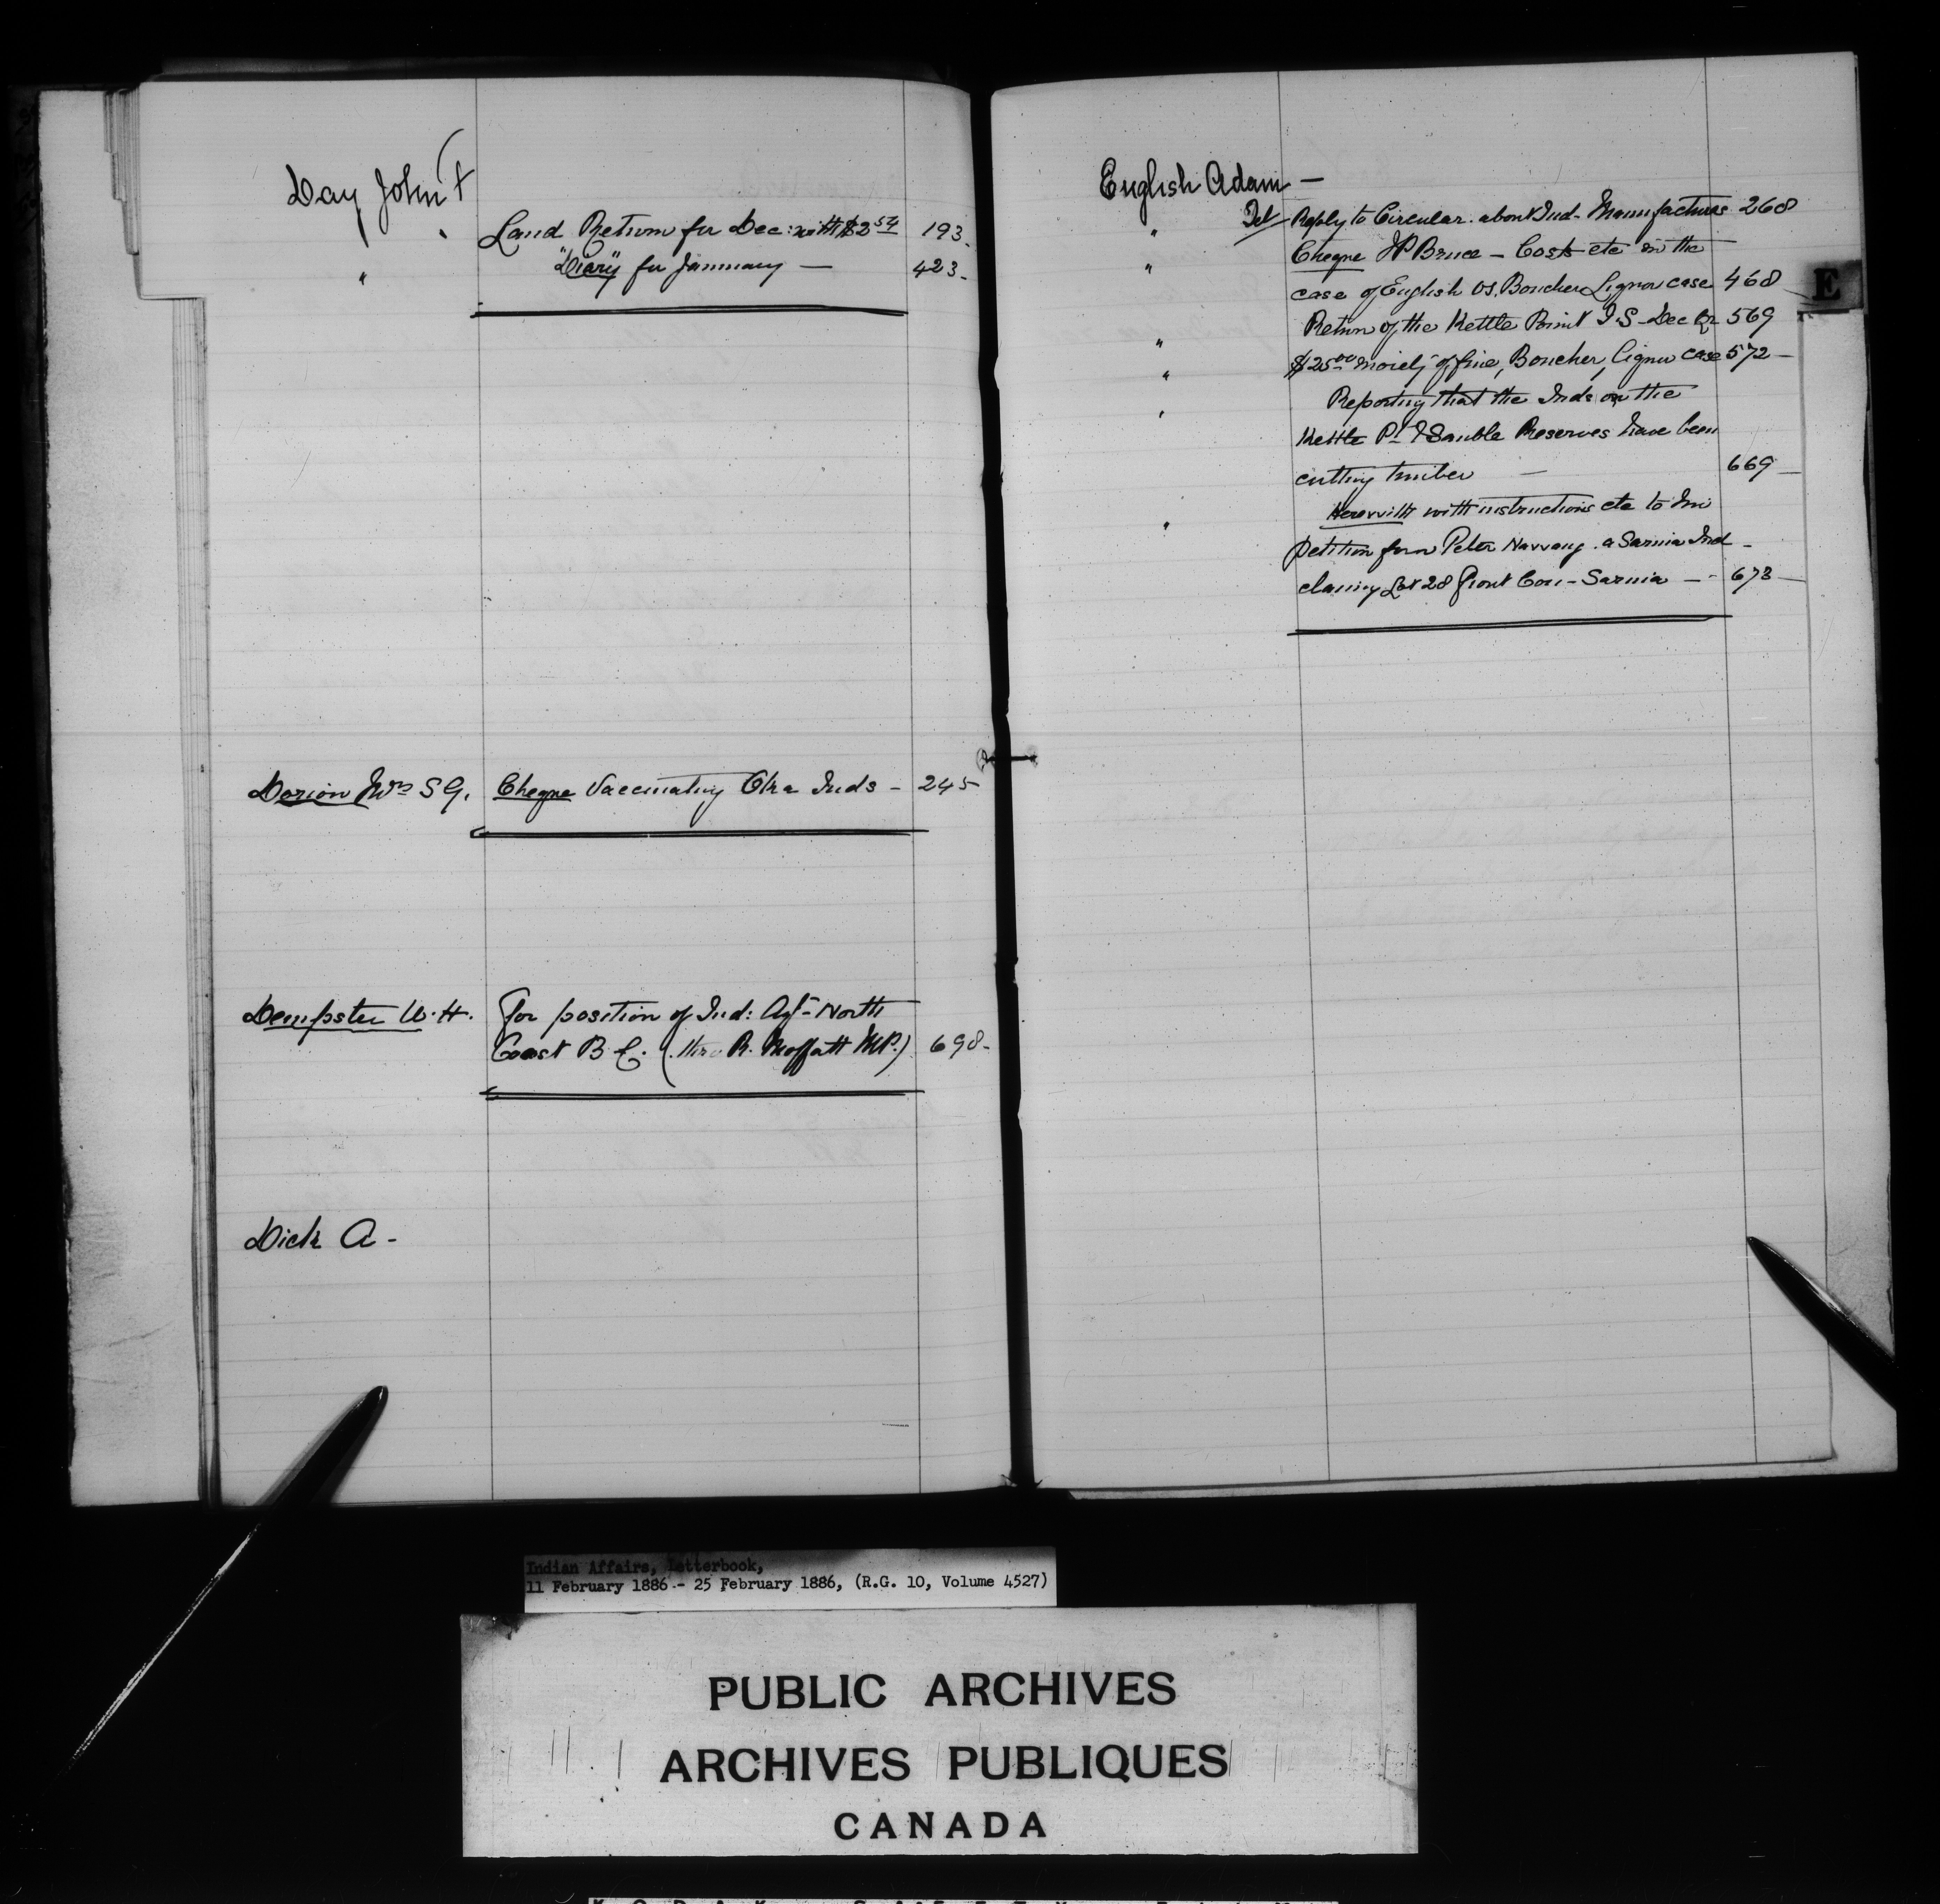 Day John F
" Land Return for Dec: with $2 54 193.
" "Diary" for January — 423.
Dorion Wm S G. Cheque Vaccinating Oka Inds - 245
Dempster W. H. For position of Ind: Agt - North
Coast B C. (thro R. Moffatt MP.) 698.
Dick A -
English Adam —
" Tel Reply to Circular. about Ind- Manufactures 268
" Cheque JP Bruce - Costs etc in the
case of English vs. Boucher Liquor case 468
" Return of the Kettle Point I.S - Dec Qr 569
" $25 00 moiety of fine, Boucher, Liquor case 572 —
" Reporting that the Inds on the
Kettle Pt & Sauble Reserves have been
cutting timber — 669 —
" Herewith with instructions etc to him
petition from Peter a Sarnia Ind -
claiming Lot 28 front Con - Sarnia — - 673 —
E
Indian Affairs, Letterbook,
11 February 1886 - 25 February 1886, (R.G. 10, Volume 4527)
PUBLIC ARCHIVES
ARCHIVES PUBLIQUES
CANADA